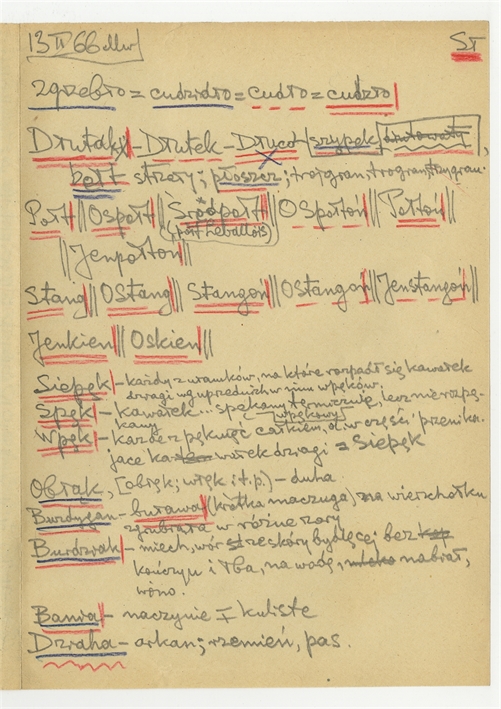 13 II 66 ST
zgrzebło = cudzidło = cudło = cudzło
Drutak – Drutek – Drucot szypek
półt strzery; płoszcz; trojgran, trogran, trzygran
Połt || Ospołt || Śródpołt || Ospołtoń || Połtoń ||
(półt Levallois)
|| Jenpołtoń ||
Stang || Ostang || Stangoń || Ostangoń || Jenstangoń ||
Jenkien || Oskien ||
Siepęk – każdy z ułamków, na które rozpadł się kawałek
dziagi wg uprzednich w nim wpęków.
Spęk – kawałek... spękany termicznie, lecz nie rozpękany
wpękowy
Wpęk – każde z pęknięć całkiem, al. w części przenikające
kawałek dziagi = Siepęk
Obłąk, [obłęk; włęk i t.p.) – duha
Burdygan – buława (krótka maczuga) na wierzchołku
zgrubiała w różne zory
Burdziak – miech, wór ze skóry bydlęcej bez
kończyn i łba, na wodę, nabiał,
wino.
Bania – naczynie ± kuliste
Dziaha – arkan; rzemień, pas.